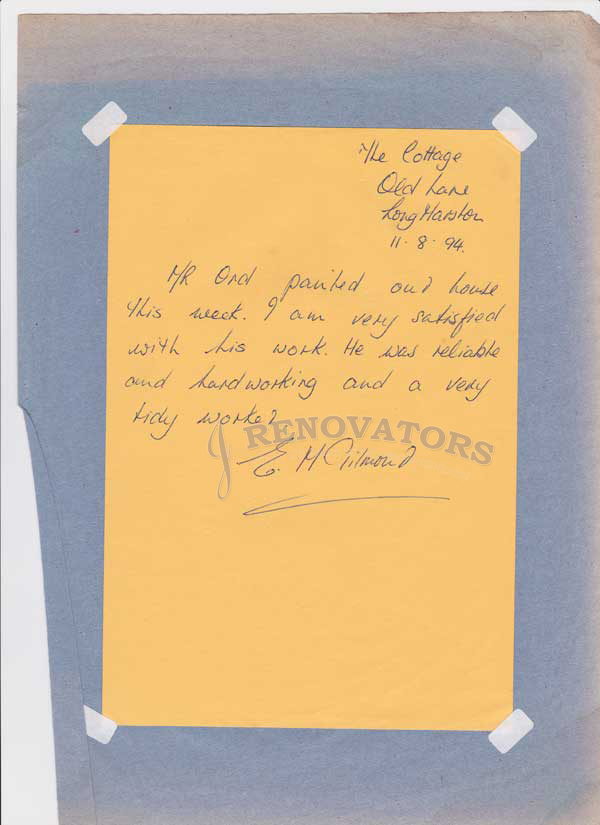 The Cottage
Old Lane
Long Marston
11.8.94.
MR Ord painted our house
this week. I am very satisfied
with his work. He was reliable
and hardworking and a very
tidy worker
J RENOVATORS
E. M Gilmour